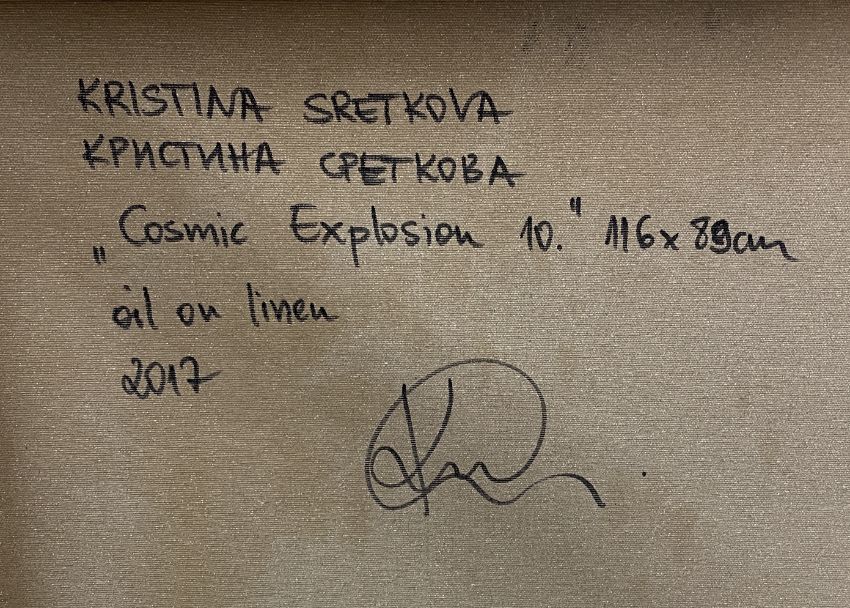 KRISTINA SRETKOVA
КРИСТИНА СРЕТКОВА
„Cosmic Explosion 10." 116x89cm
oil on linen
2017